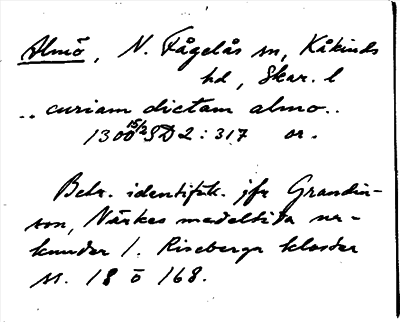 Almö, N. Fågelås sn, Kåkinds
hd, Skar. l
.. curiam dictam almo..
1300 15/2 SD 2:317 or.
Betr. identifik. jfr Grandin-
son, Närkes medeltida ur-
kunder 1. Riseberga kloster
nr. 18 o 168.